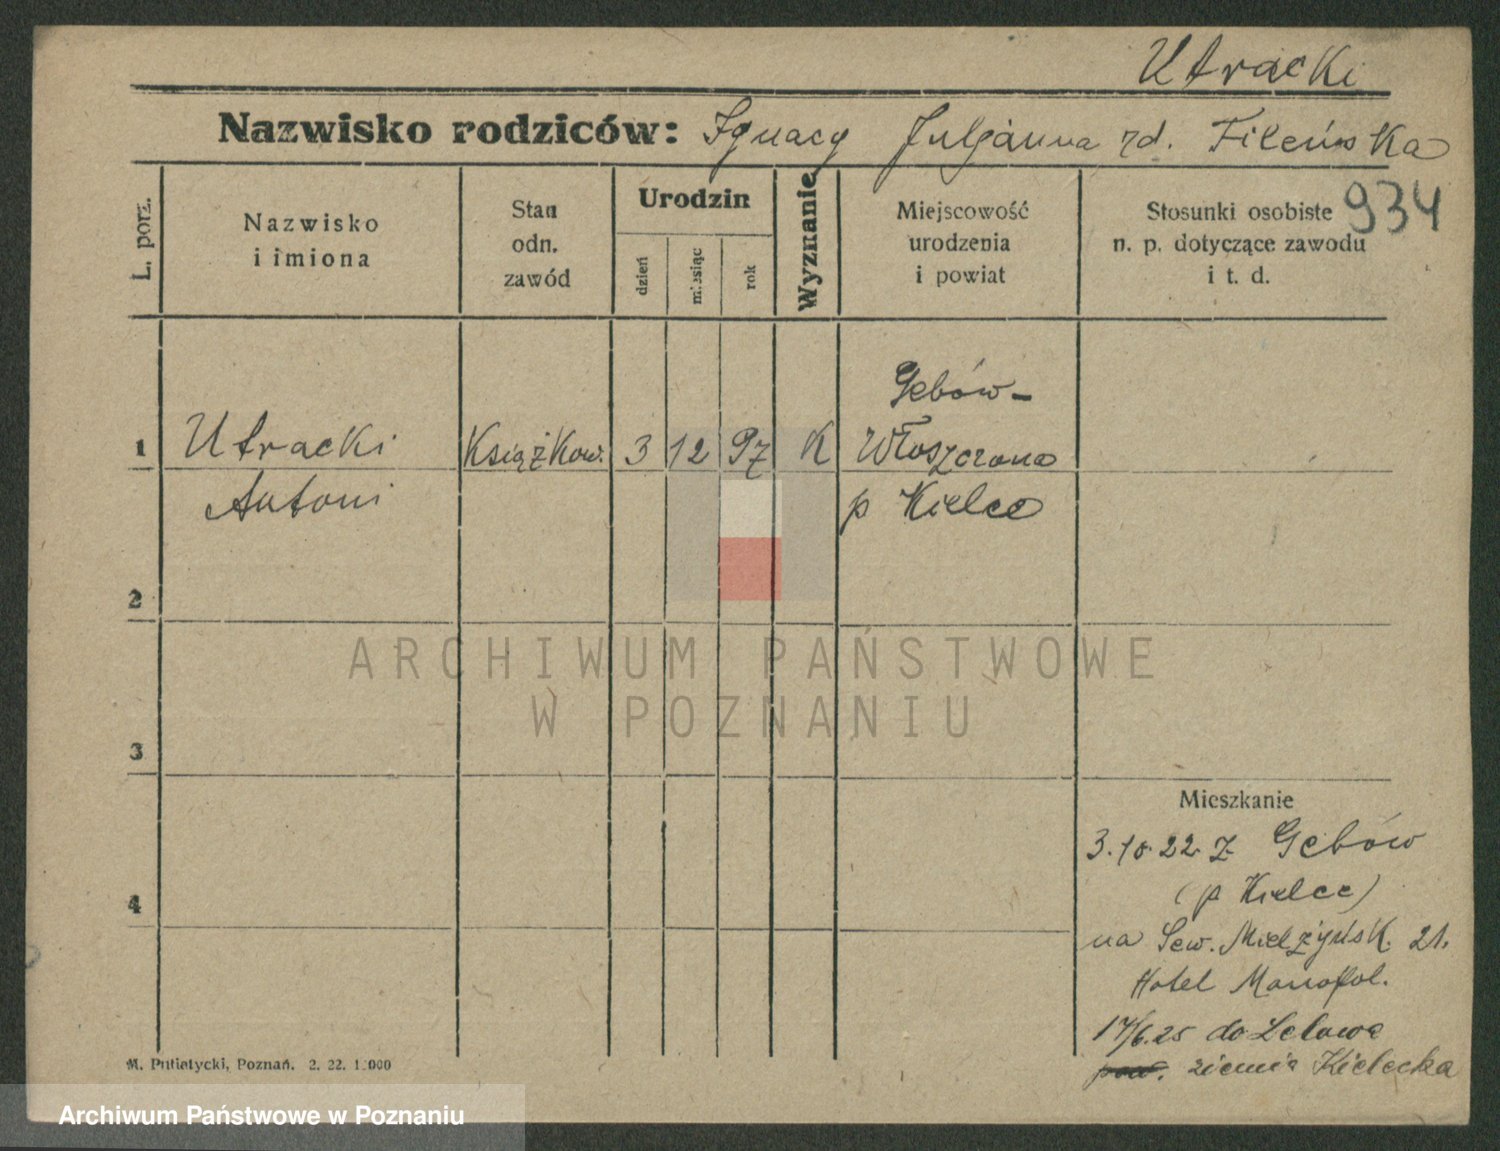 Utracki
Nazwisko rodziców: Ignacy Juljanna zd. Fileńska
934
L. porz.
Nazwisko
i imiona
Stan
odn.
zawód
Urodzin
dzień
miesiąc
rok
Wyznanie
Miejscowość
urodzenia
i powiat
Stosunki osobiste
n. p. dotyczące zawodu
i t. d.
Gebów-
1 Utracki Książkow. 3 12 97 K Włoszczona
Antoni p Kielce
2
3
4
ARCHIWUM PAŃSTWOWE
W POZNANIU
Mieszkanie
3.10.22 z Gebów
(p Kielce)
na Sew. Mielżyńsk. 21.
Hotel Monopol.
17/6.25 do
pow. ziemia Kielecka
M. Putiatycki, Poznań. 2. 22. 1.000
Archiwum Państwowe w Poznaniu